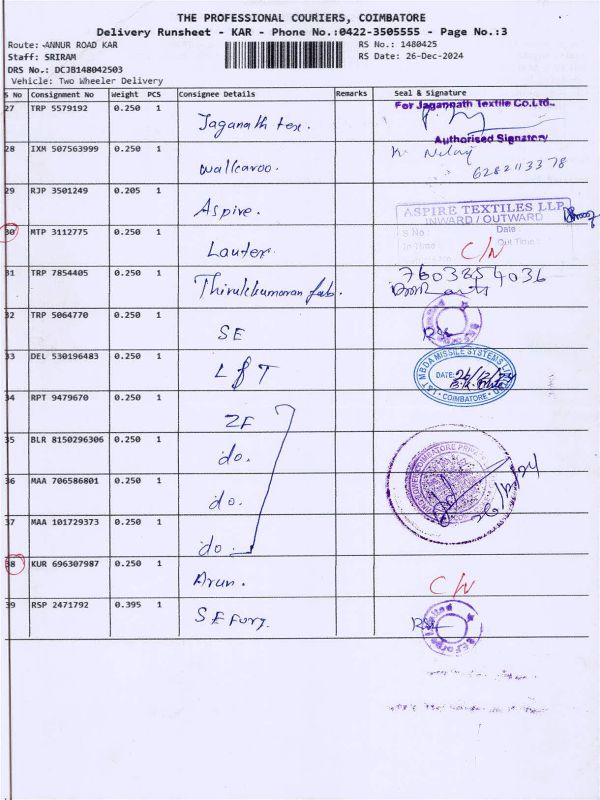 THE PROFESSIONAL COURIERS, COIMBATORE
Delivery Runsheet - KAR - Phone No.:0422-3505555 - Page No.:3
Route: ANNUR ROAD KAR RS No.: 1480425
Staff: SRIRAM RS Date: 26-Dec-2024
DRS No.: DCJB148042503
Vehicle: Two Wheeler Delivery
S No Consignment No Weight PCS Consignee Details Remarks Seal & Signature
27 TRP 5579192 0.250 1 Jaganath tex. For Jagannath Textile Co.Ltd.,
Authorised Signatory
28 IXM 507563999 0.250 1 Wallcaroo.
6282113378
29 RJP 3501249 0.205 1 Aspire. ASPIRE TEXTILES LLP
INWARD / OUTWARD
S No : Date :
In Time : Out Time :
30 MTP 3112775 0.250 1 Lauter. C/N
31 TRP 7854405 0.250 1 Thirukkumaran fab. 7603854036
32 TRP 5064770 0.250 1 SE
33 DEL 530196483 0.250 1 L & T L&T MBDA MISSILE SYSTEMS LTD
DATE: 26/12/24
COIMBATORE
34 RPT 9479670 0.250 1 ZF
35 BLR 8150296306 0.250 1 do.
36 MAA 706586801 0.250 1 do. 26/12/24
37 MAA 101729373 0.250 1 do.
38 KUR 696307987 0.250 1 Arun. C/N
39 RSP 2471792 0.395 1 SE Forg.